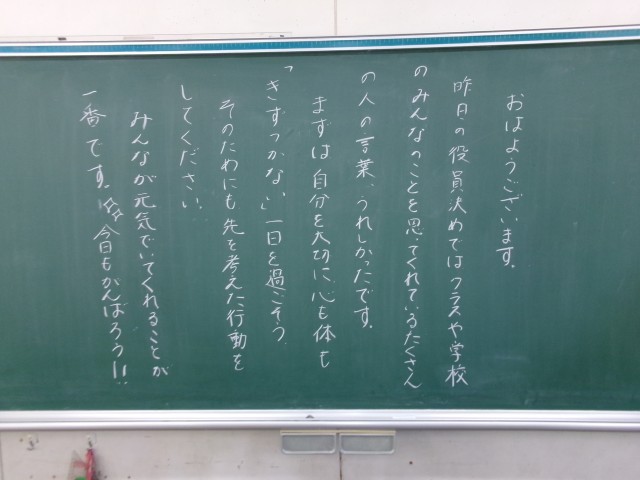 おはようございます。
昨日の役員決めではクラスや学校
のみんなのことを思ってくれているたくさん
の人の言葉、うれしかったです。
まずは自分を大切に、心も体も
「きずつかない」一日を過ごそう。
そのためにも先を考えた行動を
してください。
みんなが元気でいてくれることが
一番です。今日もがんばろう!!